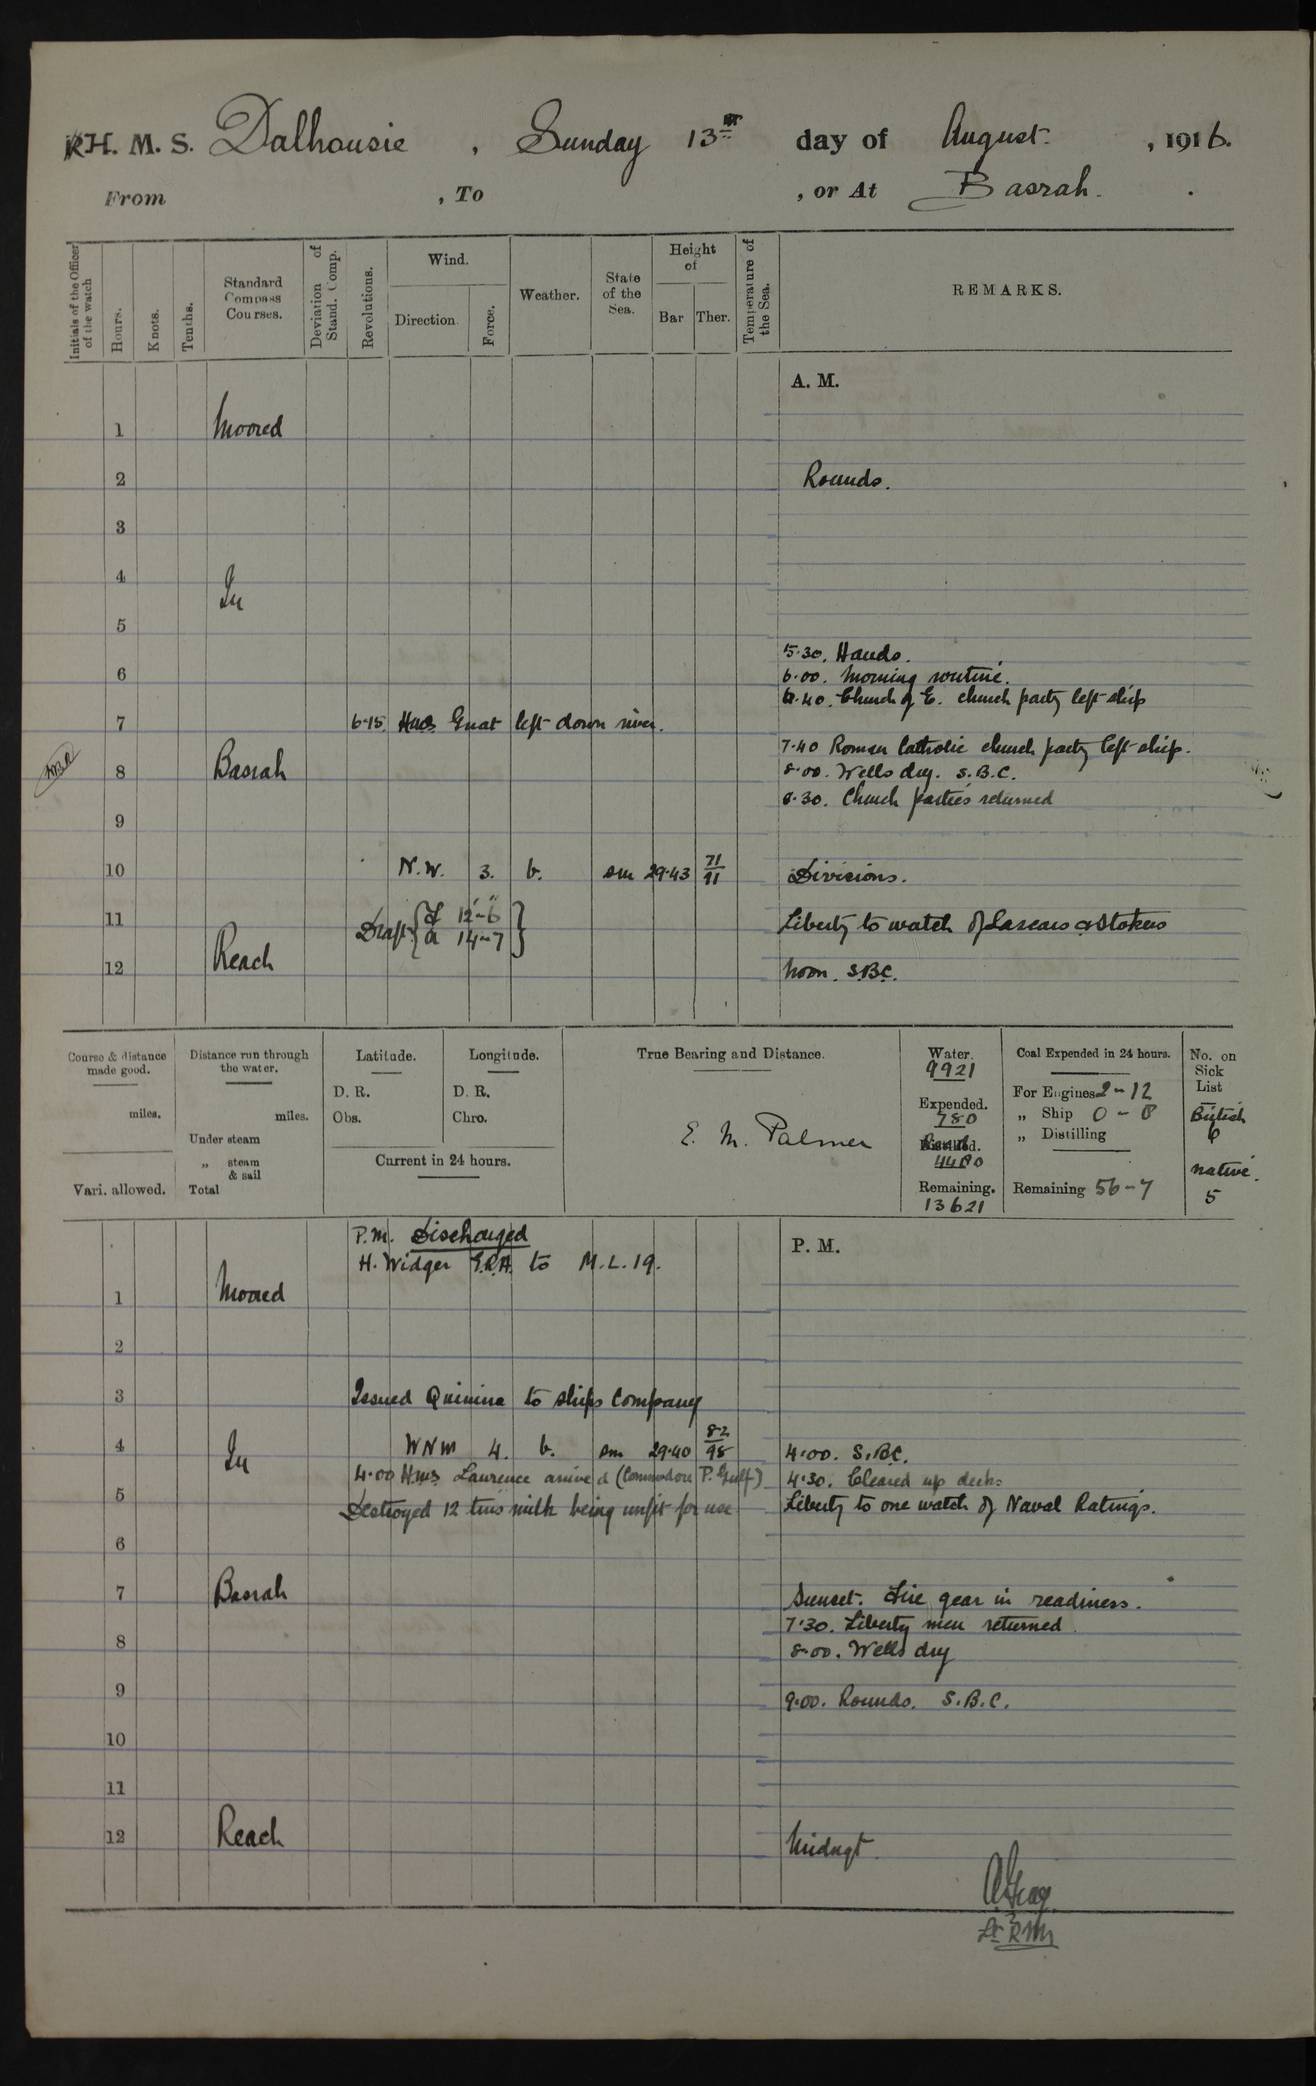 R H. M. S. Dalhousie, Sunday 13th day of August, 1916.
From , To , or At Basrah.
Initials of the Officer of the watch
Hours.
Knots.
Tenths.
Standard Compass Courses.
Deviation of Stand. Comp.
Revolutions.
Wind.
Direction
Force.
Weather.
State of the Sea.
Height of
Bar
Ther.
Temperature of the Sea.
REMARKS.
A. M.
1 Moored
2 Rounds.
3
4
In
5
5.30. Hands.
6 6.00. Morning routine.
6.40. Church of E. church party left ship
7 6.15. HMS Gnat left down river.
7.40 Roman Catholic church party left ship.
8 Basrah 8.00. Wells dry. S.B.C.
8.30. Church parties returned
9
10 N.W. 3. b. sm 29.43 71/91 Divisions.
11 Draft { F 12-6 Liberty to watch of Lascars & Stokers
A 14-7 }
12 Reach Noon. S.B.C.
Course & distance made good.
miles.
Vari. allowed.
Distance run through the water.
miles.
Under steam
„ steam & sail
Total
Latitude.
D. R.
Obs.
Longitude.
D. R.
Chro.
Current in 24 hours.
True Bearing and Distance.
E. M. Palmer
Water.
9921
Expended.
780
4480
Remaining.
13621
Coal Expended in 24 hours.
For Engines 2-12
„ Ship 0-8
„ Distilling
Remaining 56-7
No. on Sick List
British
6
native.
5
P.M. Discharged
H. Widger E.R.A. to M.L.19.
P. M.
1 Moored
2
3 Issued Quinine to ships company
4 In WNW 4. b. sm 29.40 82/98 4.00. S.B.C.
4.00 HMS Lawrence arrived (Commodore P. Gulf) 4.30. Cleared up decks
5 Destroyed 12 tins milk being unfit for use Liberty to one watch of Naval Ratings.
6
7 Basrah Sunset. Fire gear in readiness.
7.30. Liberty men returned
8 8.00. Wells dry
9 9.00. Rounds. S.B.C.
10
11
12 Reach Midngt.